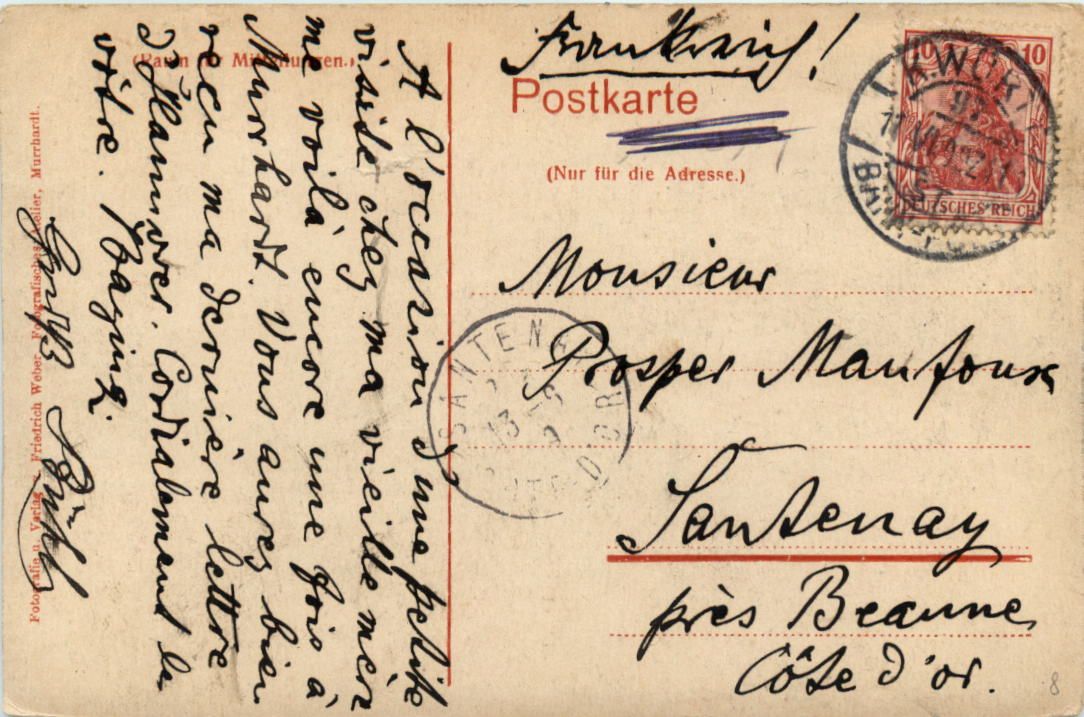 (Raum für Mitteilungen.)
A l'occasion d'une petite
visite chez ma vieille mère
me voilà encore une fois à
Murrhardt. Vous aurez bien
reçu ma dernière lettre
d'Hannover. Cordialement le
vôtre.
Fotografie u. Verlag v. Friedrich Weber, Fotografisches Atelier, Murrhardt.
Frankreich!
Postkarte
(Nur für die Adresse.)
Monsieur
Prosper Maufoux
Santenay
près Beaune
Côte d'or.
10 10
DEUTSCHES REICH
K. WÜRTT.
SANTENAY
CÔTE-D'OR
13
8